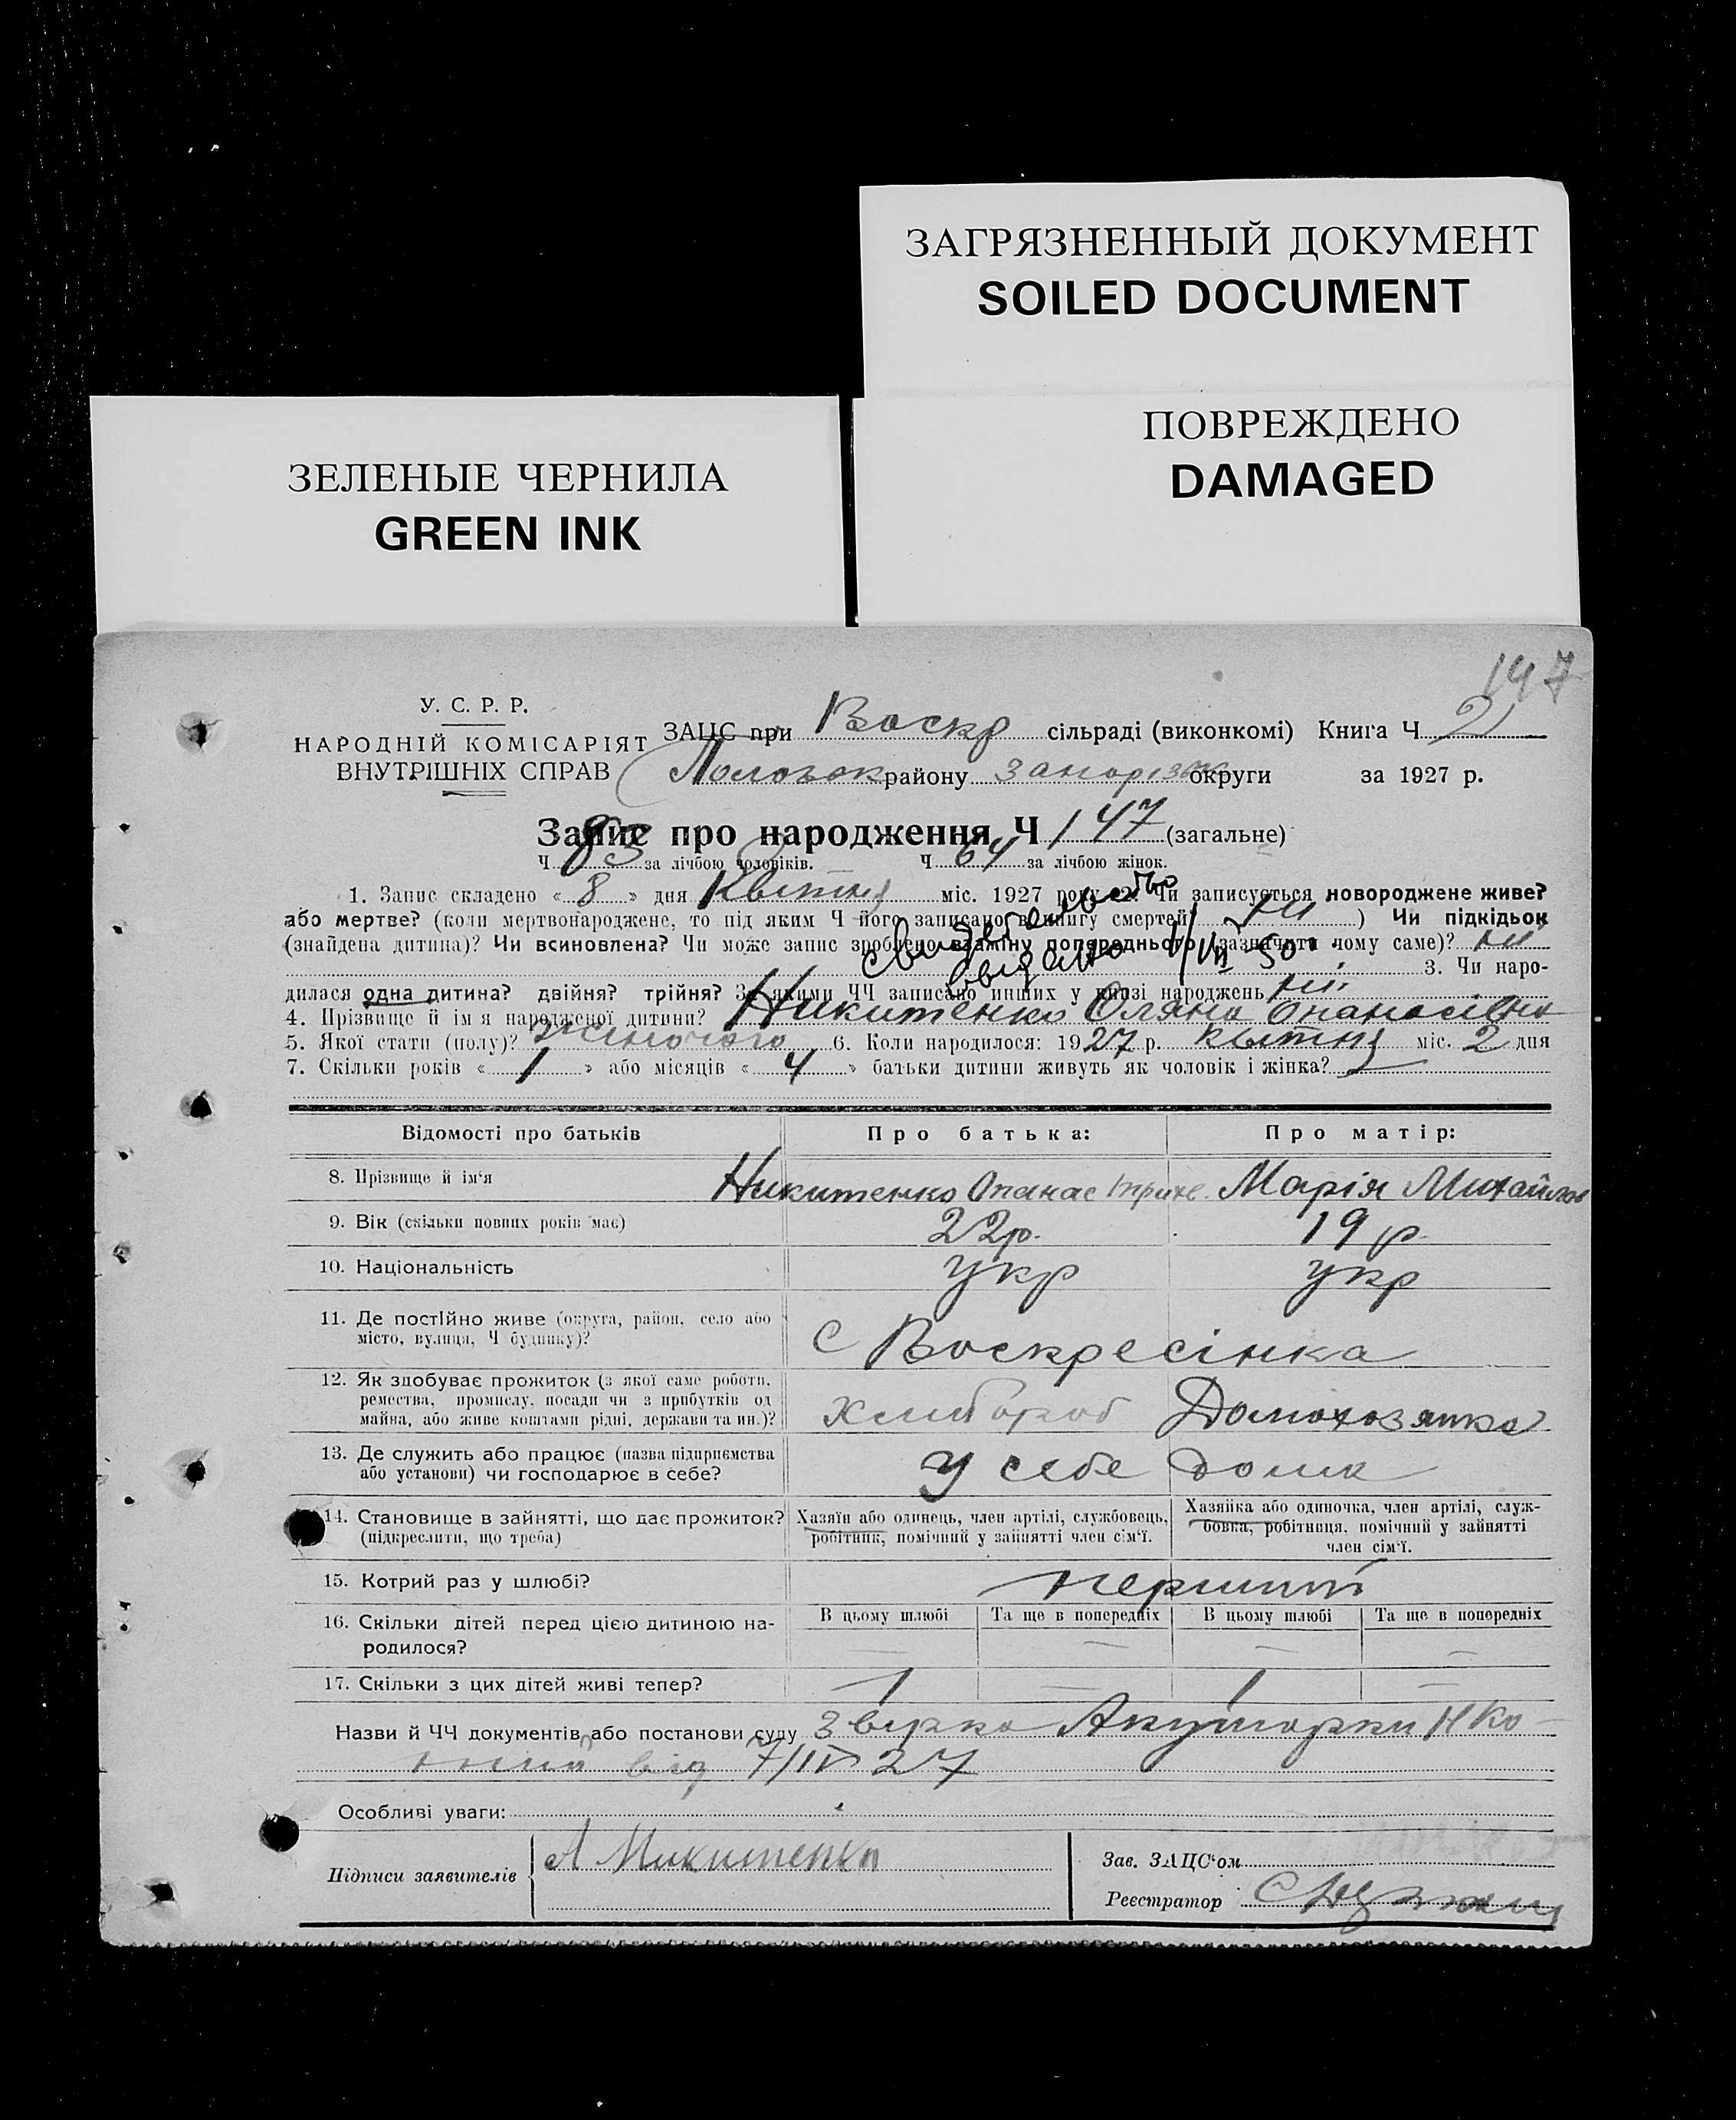 ЗАГРЯЗНЕННЫЙ ДОКУМЕНТ
SOILED DOCUMENT
ПОВРЕЖДЕНО
DAMAGED
ЗЕЛЕНЫЕ ЧЕРНИЛА
GREEN INK
147
У. С. Р. Р.
НАРОДНІЙ КОМІСАРІЯТ
ВНУТРІШНІХ СПРАВ
ЗАЦС при Воскр сільраді (виконкомі) Книга Ч 2
Пологок району Запорізьк округи за 1927 р.
Запис про народження Ч 147 (загальне)
Ч 83 за лічбою чоловіків. Ч 64 за лічбою жінок.
1. Запис складено « 8 » дня Квітня міс. 1927 року 2. Чи записується новороджене живе?
або мертве? (коли мертвонароджене, то під яким Ч його записано в книгу смертей ні ) Чи підкідьок
(знайдена дитина)? Чи всиновлена? Чи може запис зроблено взаміну попереднього (зазначити чому саме)? ні
3. Чи наро-
дилася одна дитина? двійня? трійня? За якими ЧЧ записано инших у книзі народжень ні
4. Прізвище й ім я народженої дитини? Никитенко Оляна Опанасівна
5. Якої стати (полу)? жіночого 6. Коли народилося: 1927 р. квітня міс. 2 дня
7. Скільки років « 1 » або місяців « 4 » батьки дитини живуть як чоловік і жінка?
Відомості про батьків Про батька: Про матір:
8. Прізвище й ім'я Никитенко Опанас Марія Михайлов
9. Вік (скільки повних років має) 22р. 19 р.
10. Національність укр укр
11. Де постійно живе (округа, район, село або
місто, вулиця, Ч будинку)? С Воскресінка
12. Як здобуває прожиток (з якої саме роботи,
ремества, промислу, посади чи з прибутків од
майна, або живе коштами рідні, держави та ин.)? Хлибороб Домохозяика
13. Де служить або працює (назва підприємства
або установи) чи господарює в себе? У себе дома
14. Становище в зайнятті, що дає прожиток?
(підкреслити, що треба)
Хазяїн або одинець, член артілі, службовець,
робітник, помічний у зайнятті член сім'ї.
Хазяйка або одиночка, член артілі, служ-
бовка, робітниця, помічний у зайнятті
член сім'ї.
15. Котрий раз у шлюбі? перший
16. Скільки дітей перед цією дитиною на-
родилося?
В цьому шлюбі Та ще в попередніх В цьому шлюбі Та ще в попередніх
— — — —
17. Скільки з цих дітей живі тепер? 1 — 1 —
Назви й ЧЧ документів або постанови суду Акушорки
від 7/IV 27
Особливі уваги:
Підписи заявителів А Микитенко
Зав. ЗАЦС'ом
Реєстратор